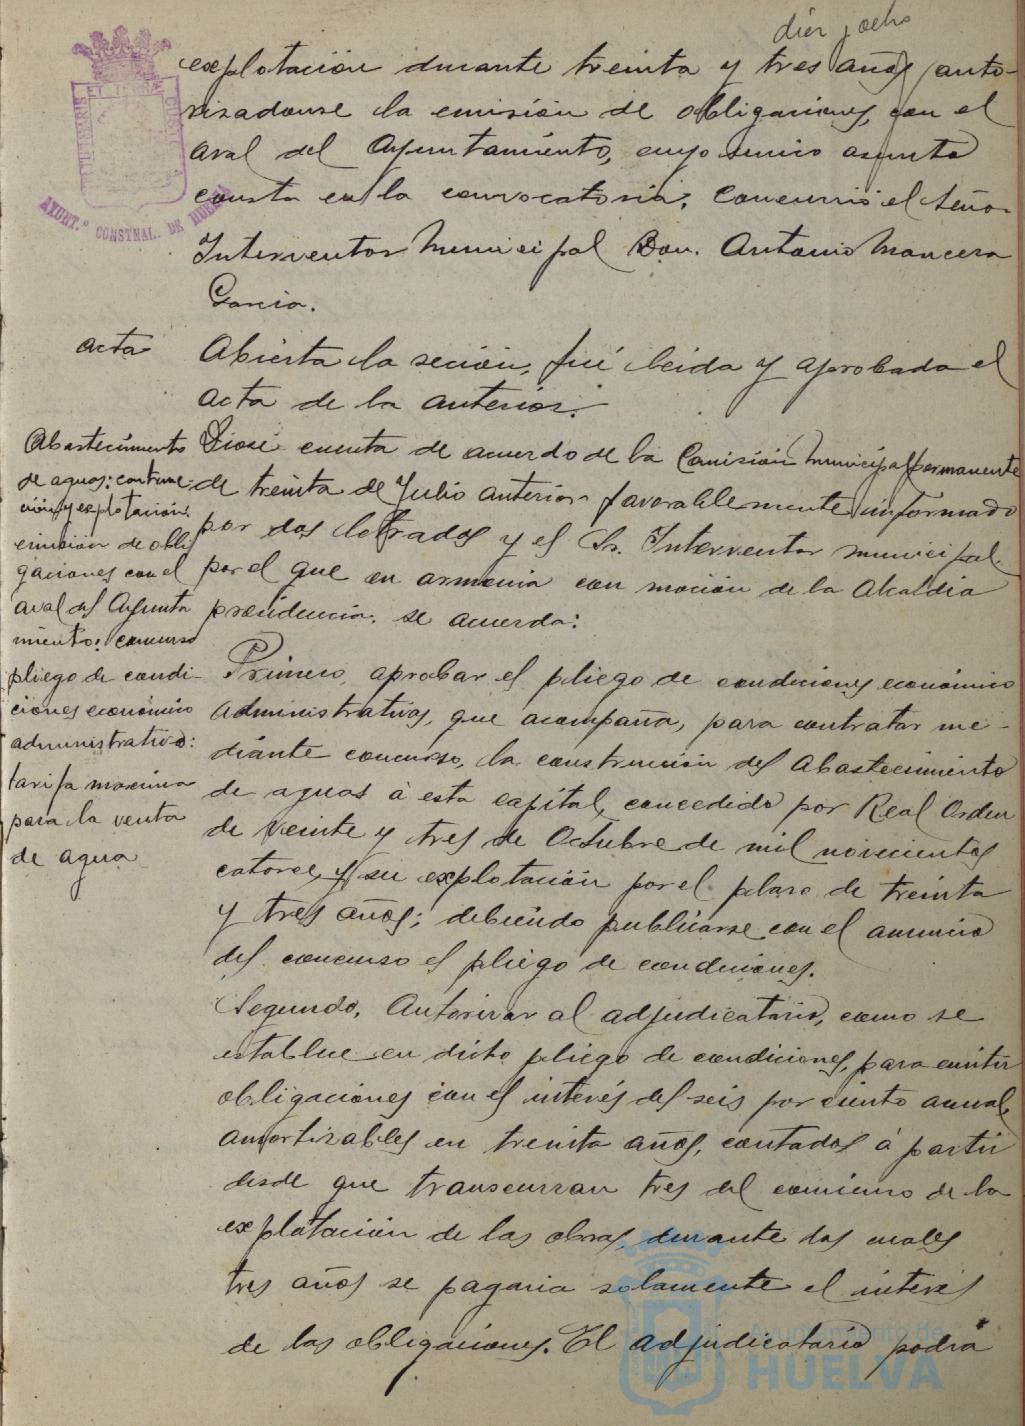 diez y ocho
explotación durante treinta y tres años, auto-
rizadonse la emisión de obligaciones, con el
aval del Ayuntamiento, cuyo unico asunto
consta en la convocatoria; Concurrió el Señor
Interventor Municipal Don. Antonio Mancera
Garcia.
acta
Abierta la seción, fué leida y aprobada el
acta de la anterior.
Abastecimiento
de aguas: construc-
ción y explotación
emisión de obli
gaciones con el
aval del Ayunta
miento: concurso
pliego de condi-
ciones económico
administrativo:
tarifa maxima
para la venta
de agua
Diose cuenta de acuerdo de la Comisión Municipal permanente
de treinta de Julio anterior favorablemente informado
por dos letrados y el Sr. Interventor municipal
por el que en armonia con moción de la Alcaldia
presidencia. se acuerda:
Primero, aprobar el pliego de condiciones económico
administrativas, que acompaña, para contratar me-
diante concurso, la construcción del Abastecimiento
de aguas á esta capital, concedido por Real Orden
de veinte y tres de Octubre de mil novecientos
catorce, y su explotación por el plazo de treinta
y tres años; debiendo publicarse con el anuncio
del concurso el pliego de condiciones.
Segundo, Autorizar al adjudicatario, como se
establece en dicho pliego de condiciones, para emitir
obligaciones con el interés del seis por ciento anual,
amortizables en treinta años, contados á partir
desde que transcurran tres del comienzo de la
explotación de las obras, durante los cuales
tres años se pagaria solamente el interés
de las obligaciones. El adjudicatario podrá
AYUNT.º CONSTNAL. DE HUELVA
Ayuntamiento de
HUELVA